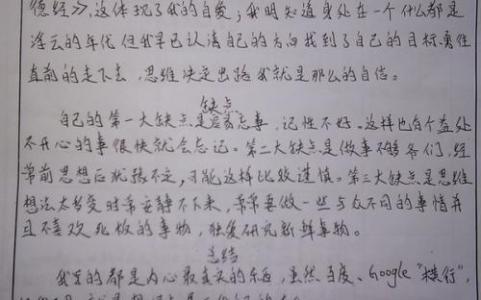 德经》，这体现了我的自爱，我明知道身处在一个什么都是
浮云的年代，但我早已认清自己的方向找到了自己的目标勇往
直前的走下去，思维决定出路我就是那么的自信。
缺点
自己的第一大缺点是容易忘事，记性不好。这样也有个益处
不开心的事很快就会忘记。第二大缺点是做事不够爷们，经
常前思想后犹豫不定，可能这样比较谨慎。第三大缺点是思维
想法太多变时常安静不下来，常常要做一些与众不同的事情并
且不喜欢死板的事物，独爱研究新鲜事物。
总结
我写的都是内心最真实的东西，虽然百度、Google“横行”，